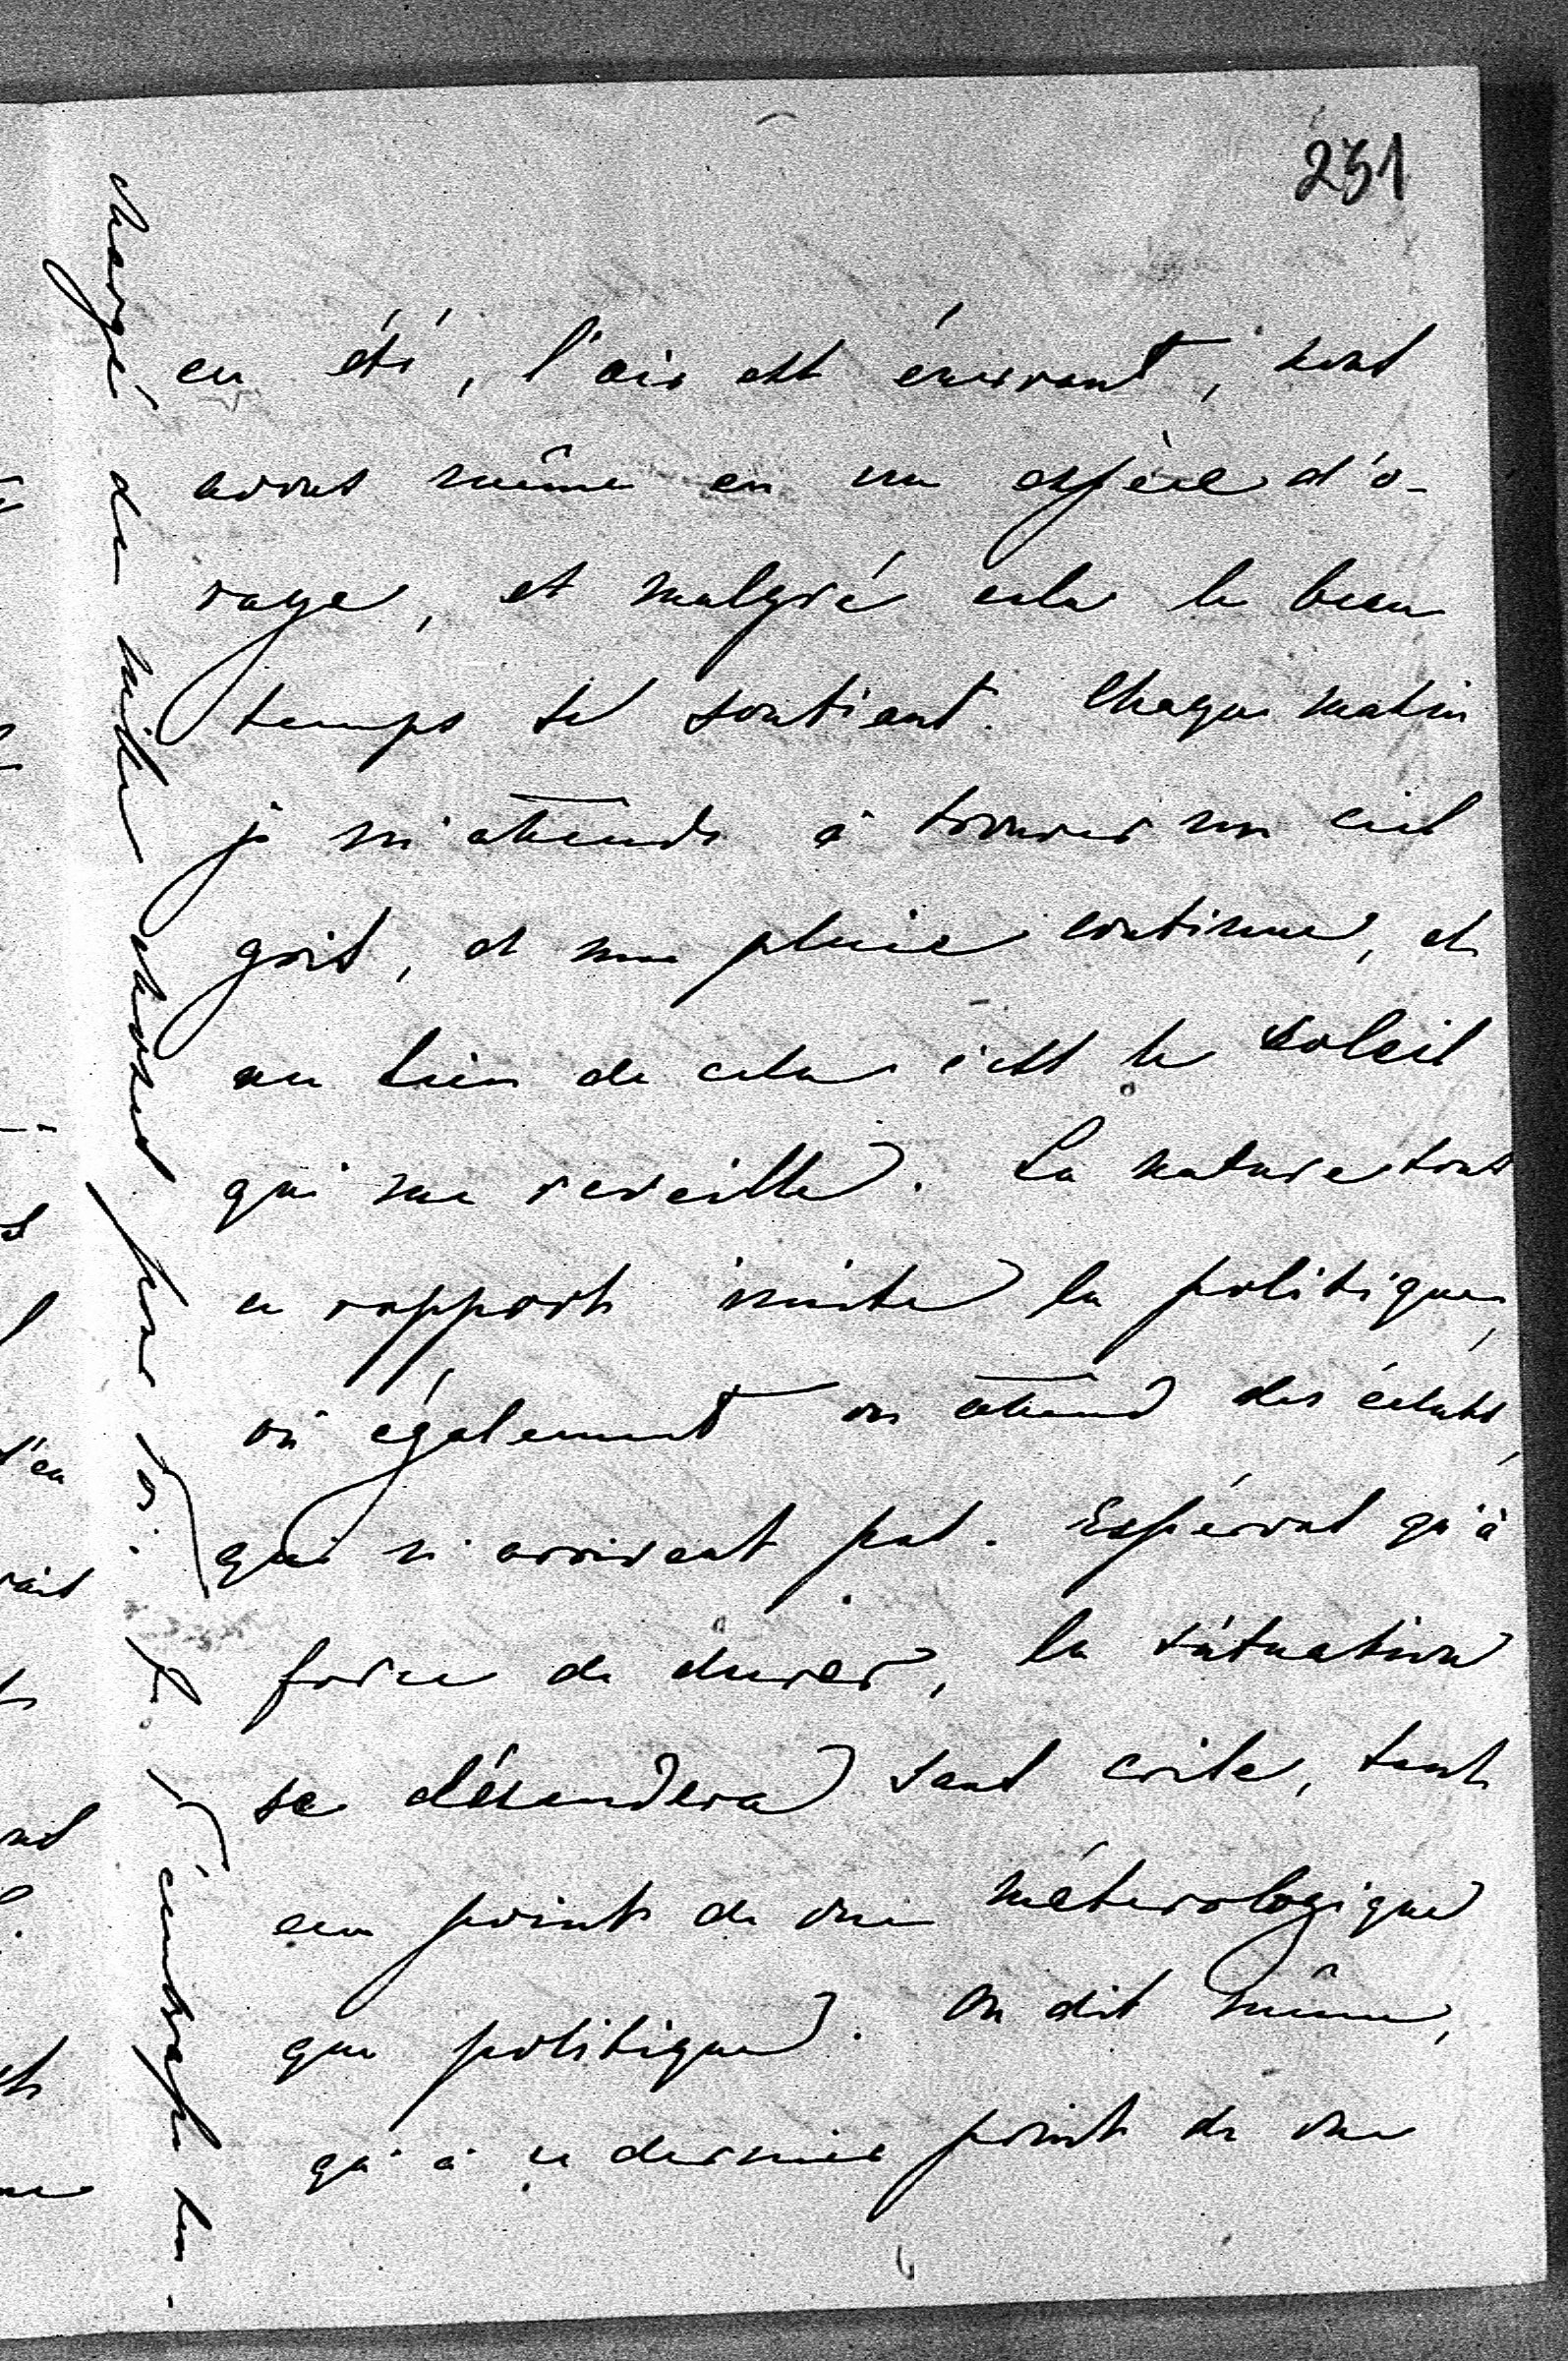 231
en été, l'air est énervant, nous
avons même eu une espèce d'o-
rage, et malgré cela le beau
temps se soutient. Chaque matin
je m'attends à trouver un ciel
gris, et une pluie continue, et
au lieu de cela c'est le soleil
qui me reveille. La nature sous
ce rapport imite la politique,
où également on attend des éclats,
qui n'arrivent pas. Espérons qu'à
force de durer, la situation
se détendera sans crise, tant
au point de vue méterologique
que politique. On dit même,
qu'à ce dernier point de vue
chargé de mille choses pour toi. Il